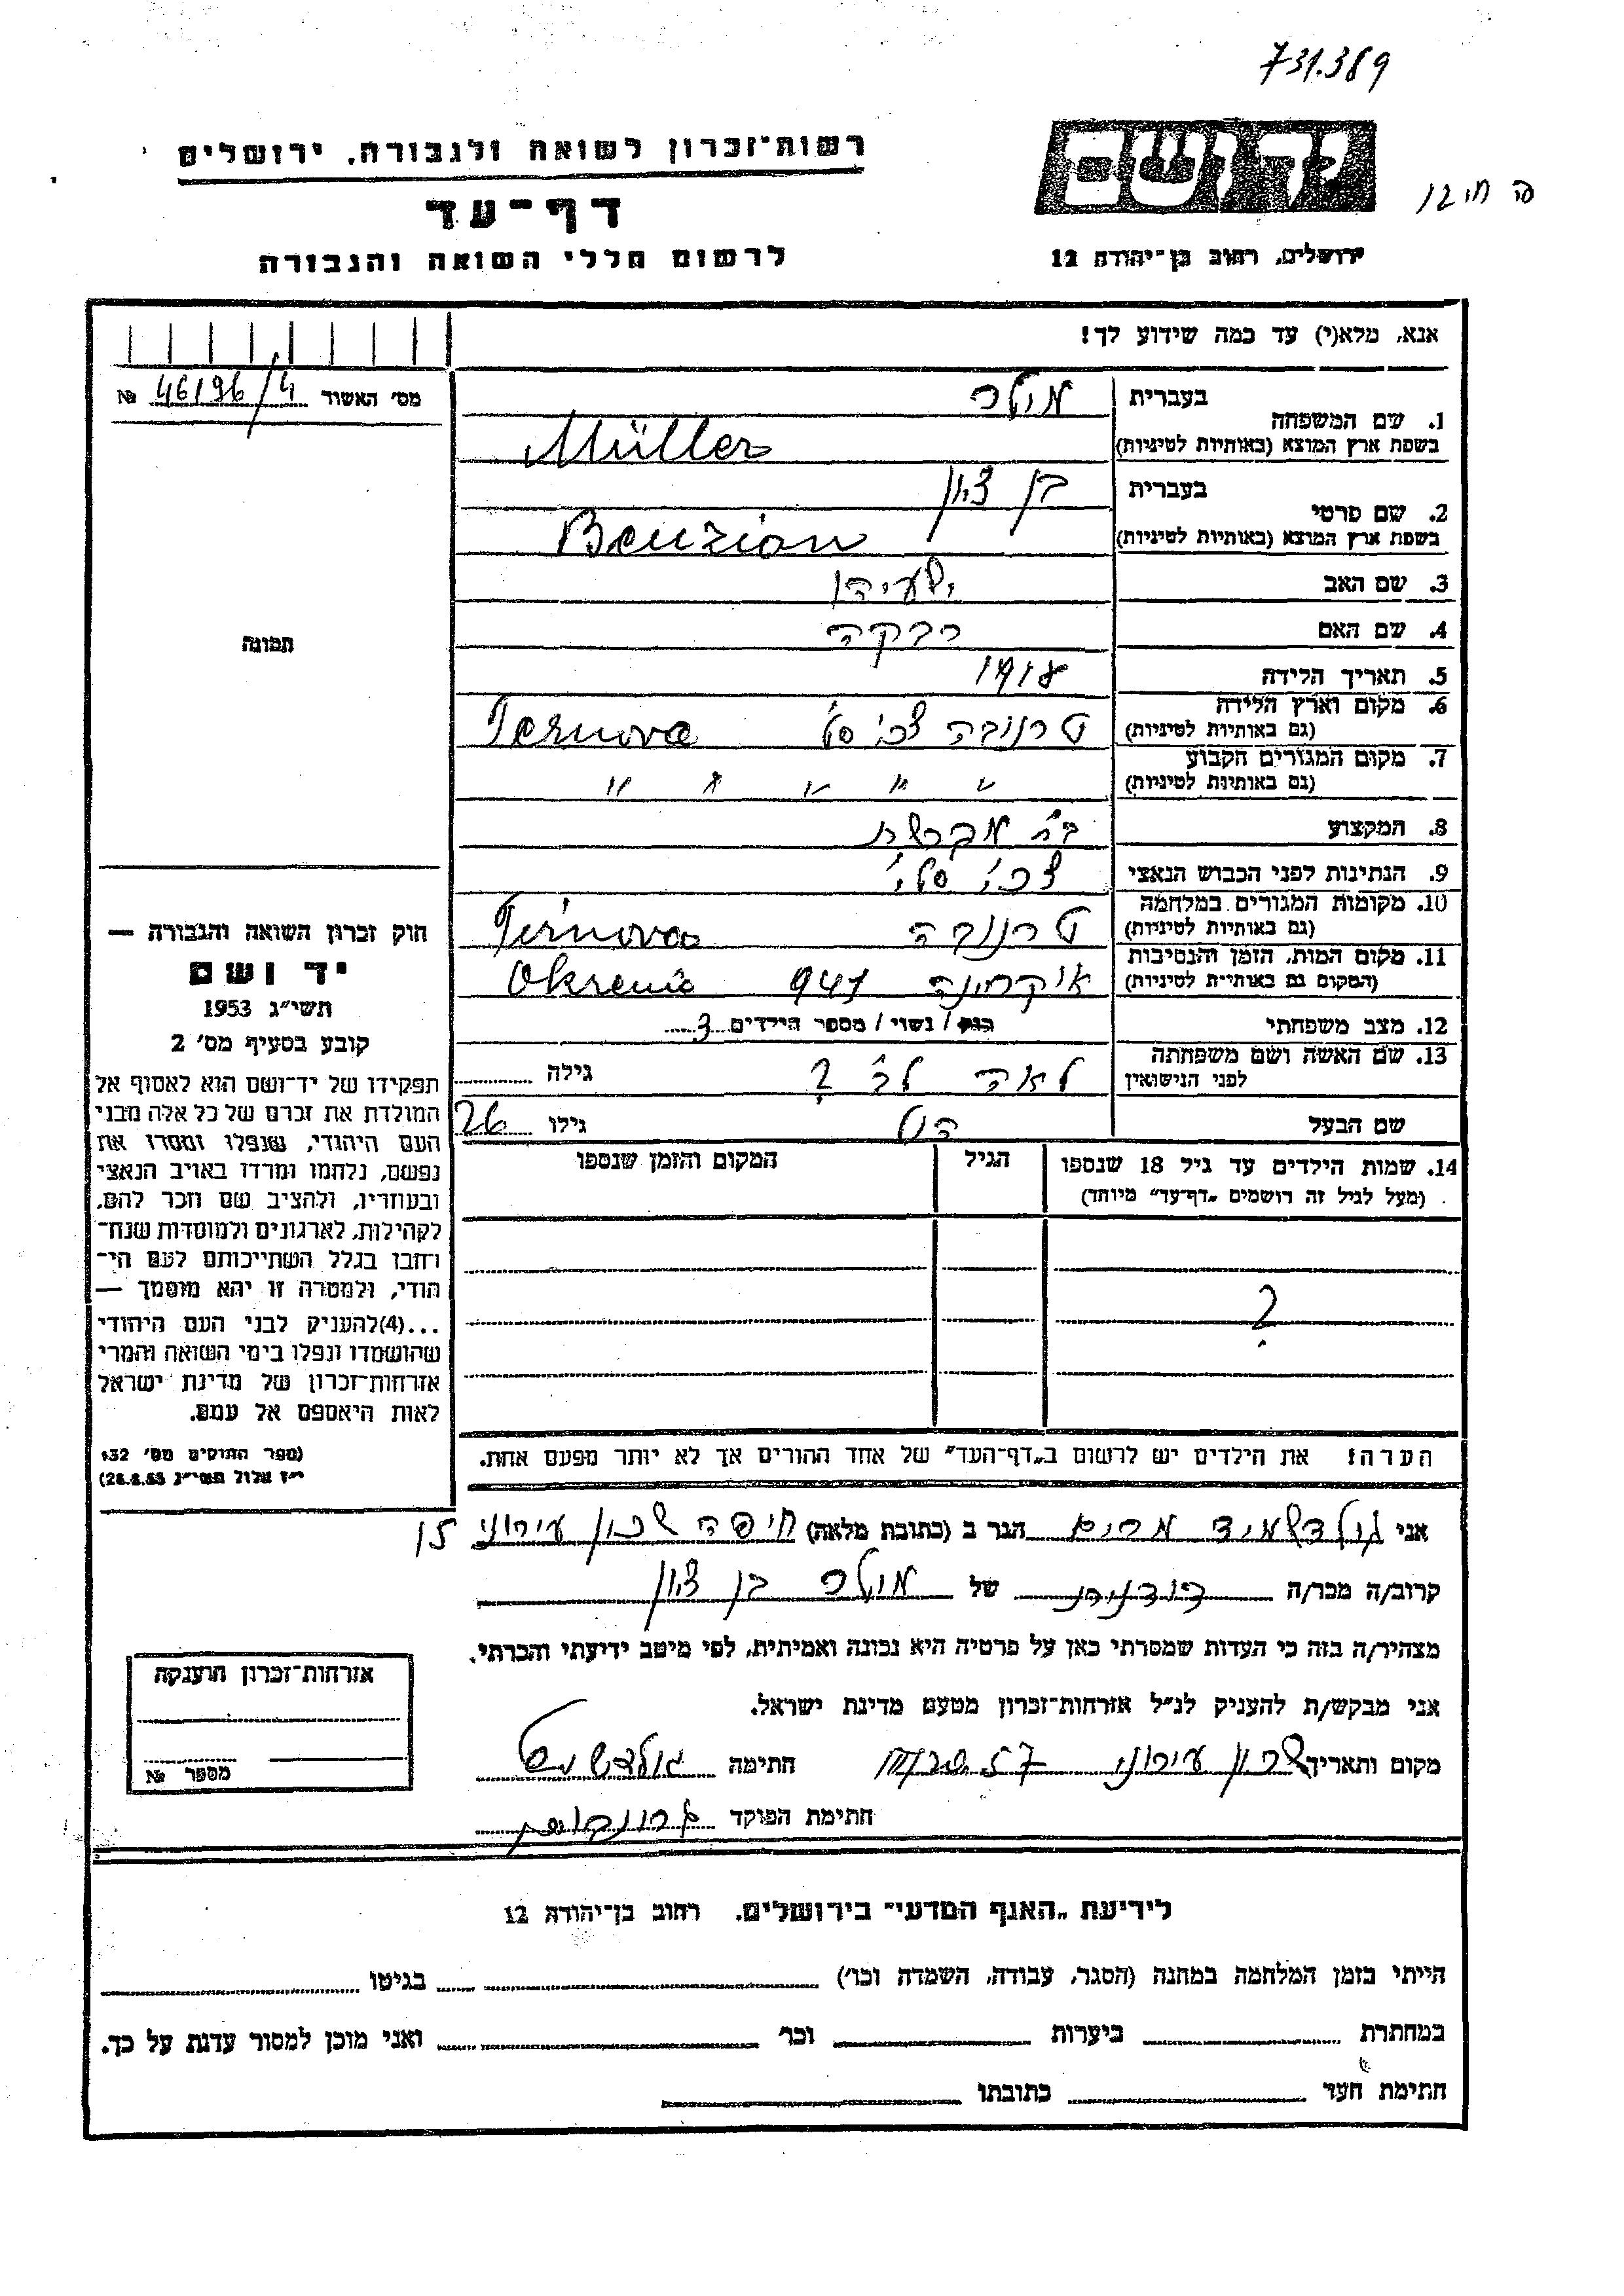 731.389
רשות־זכרון לשואה ולגבורה, ירושלים
דף־עד
לרשום חללי השואה והגבורה
יד ושם
ירושלים, רחוב בן־יהודה 12
אנא, מלא(י) עד כמה שידוע לך!
מס' האשור 46196/4 №
1. שם המשפחה
בעברית מולר
בשפת ארץ המוצא (באותיות לטיניות) Müller
2. שם פרטי
בעברית בן ציון
בשפת ארץ המוצא (באותיות לטיניות) Benzion
3. שם האב ישעיהו
4. שם האם רבקה
5. תאריך הלידה 1918
6. מקום וארץ הלידה
(גם באותיות לטיניות) טרנובה צכ' סל' Ternova
7. מקום המגורים הקבוע
(גם באותיות לטיניות) " " " " "
8. המקצוע
9. הנתינות לפני הכבוש הנאצי צכ' סל'
10. מקומות המגורים במלחמה
(גם באותיות לטיניות) טרנובה Ternova
11. מקום המות, הזמן והנסיבות
(המקום גם באותיות לטיניות) אוקרינה 941 Okrenia
12. מצב משפחתי רווק / נשוי / מספר הילדים 3
13. שם האשה ושם משפחתה
לפני הנישואין לאה לב' ? גילה
שם הבעל גילו 26
14. שמות הילדים עד גיל 18 שנספו
(מעל לגיל זה רושמים „דף־עד" מיוחד)
הגיל
המקום והזמן שנספו
?
הערה: את הילדים יש לרשום ב„דף־העד" של אחד ההורים אך לא יותר מפעם אחת.
תמונה
חוק זכרון השואה והגבורה —
יד ושם
תשי"ג 1953
קובע בסעיף מס' 2
תפקידו של יד־ושם הוא לאסוף אל
המולדת את זכרם של כל אלה מבני
העם היהודי, שנפלו ומסרו את
נפשם, נלחמו ומרדו באויב הנאצי
ובעוזריו, ולהציב שם וזכר להם,
לקהילות, לארגונים ולמוסדות שנח־
רחבו בגלל השתייכותם לעם הי־
הודי, ולמטרה זו יהא מוסמך —
...(4)להעניק לבני העם היהודי
שהושמדו ונפלו בימי השואה והמרי
אזרחות־זכרון של מדינת ישראל
לאות היאספם אל עמם.
(ספר החוקים מס' 132
י"ז אלול תשי"ג 28.8.53)
אני גולדשמיד מרים הגר ב (כתובת מלאה) חיפה שכון עירוני 15
קרוב/ה מכר/ה בודניה של מולר בן ציון
מצהיר/ה בזה כי העדות שמסרתי כאן על פרטיה היא נכונה ואמיתית, לפי מיטב ידיעתי והכרתי.
אני מבקש/ת להעניק לנ"ל אזרחות־זכרון מטעם מדינת ישראל.
מקום ותאריך שכון עירוני חתימה
חתימת הפוקד
אזרחות־זכרון הוענקה
מספר №
לידיעת „האגף המדעי" בירושלים. רחוב בן־יהודה 12
הייתי בזמן המלחמה במחנה (הסגר, עבודה, השמדה וכו') בגיטו
במחתרת ביערות וכו' ואני מוכן למסור עדות על כך.
חתימת העד כתובתו